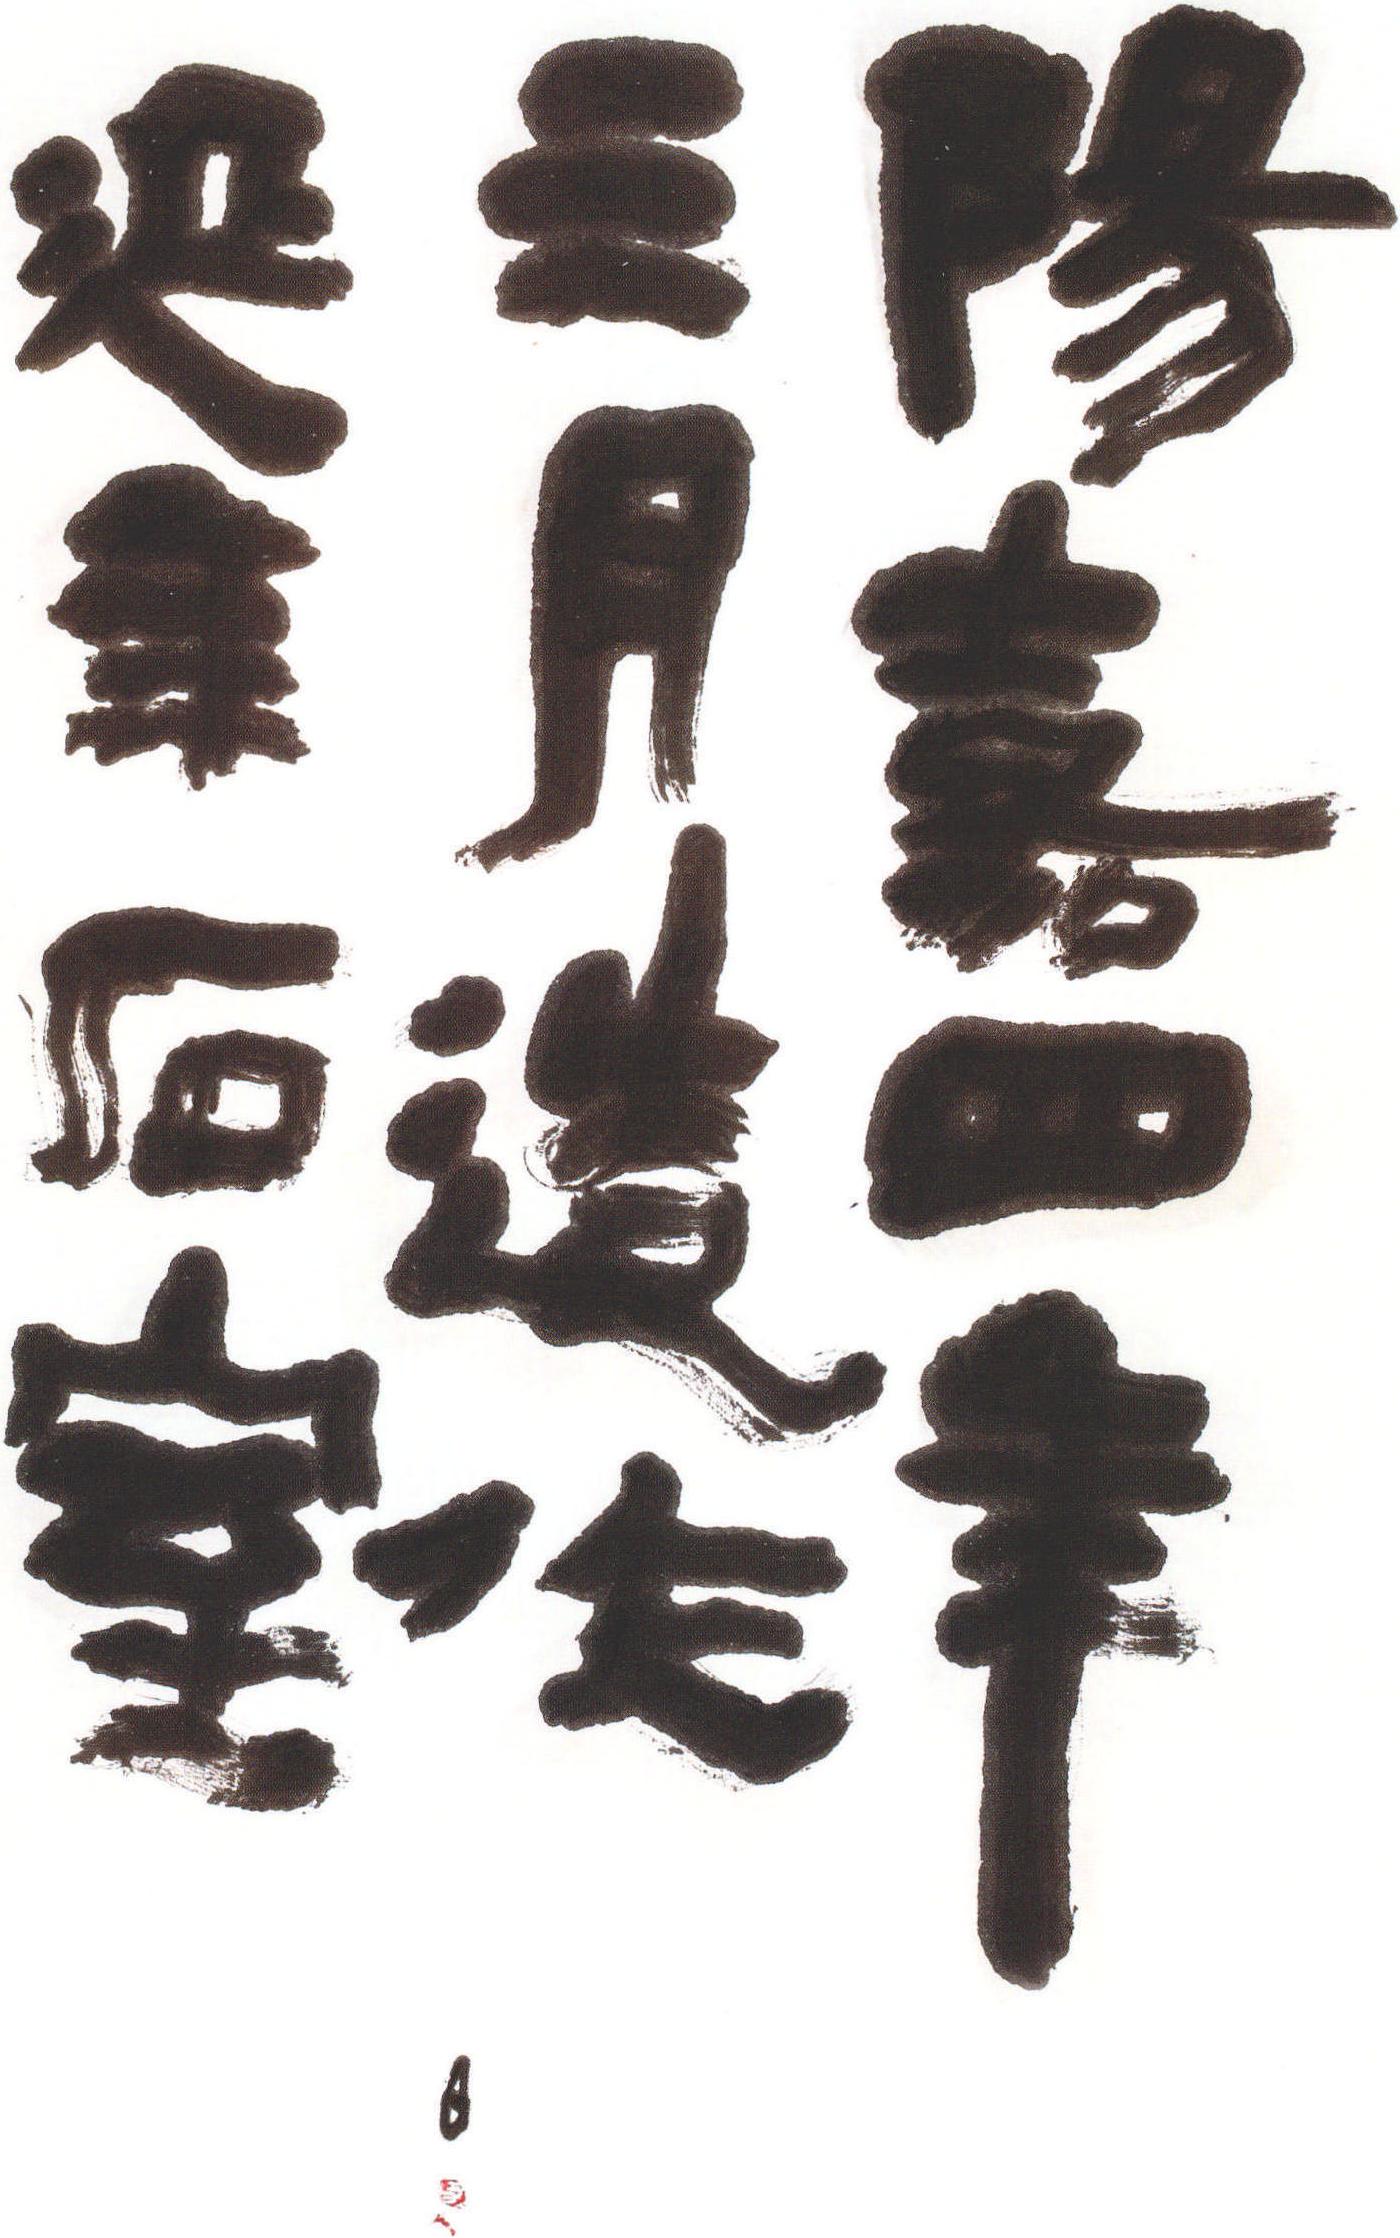 陽嘉四年
三月造作
延年石室
白